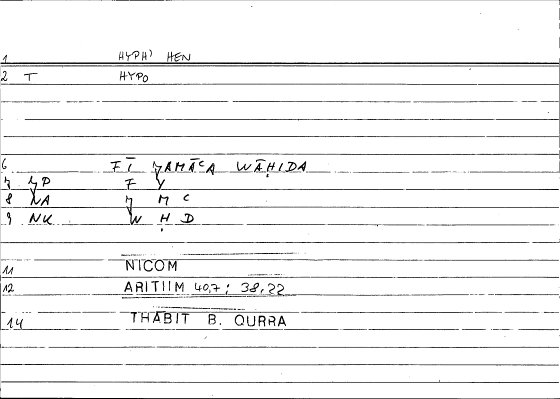 1 HYPH' HEN
2 T HYPO
6 FĪ JAMĀCA WĀḤIDA
7 JP F Y
8 NA J M C
9 NK W Ḥ D
11 NICOM
12 ARITIIM 40,7; 38,22
14 THĀBIT B. QURRA